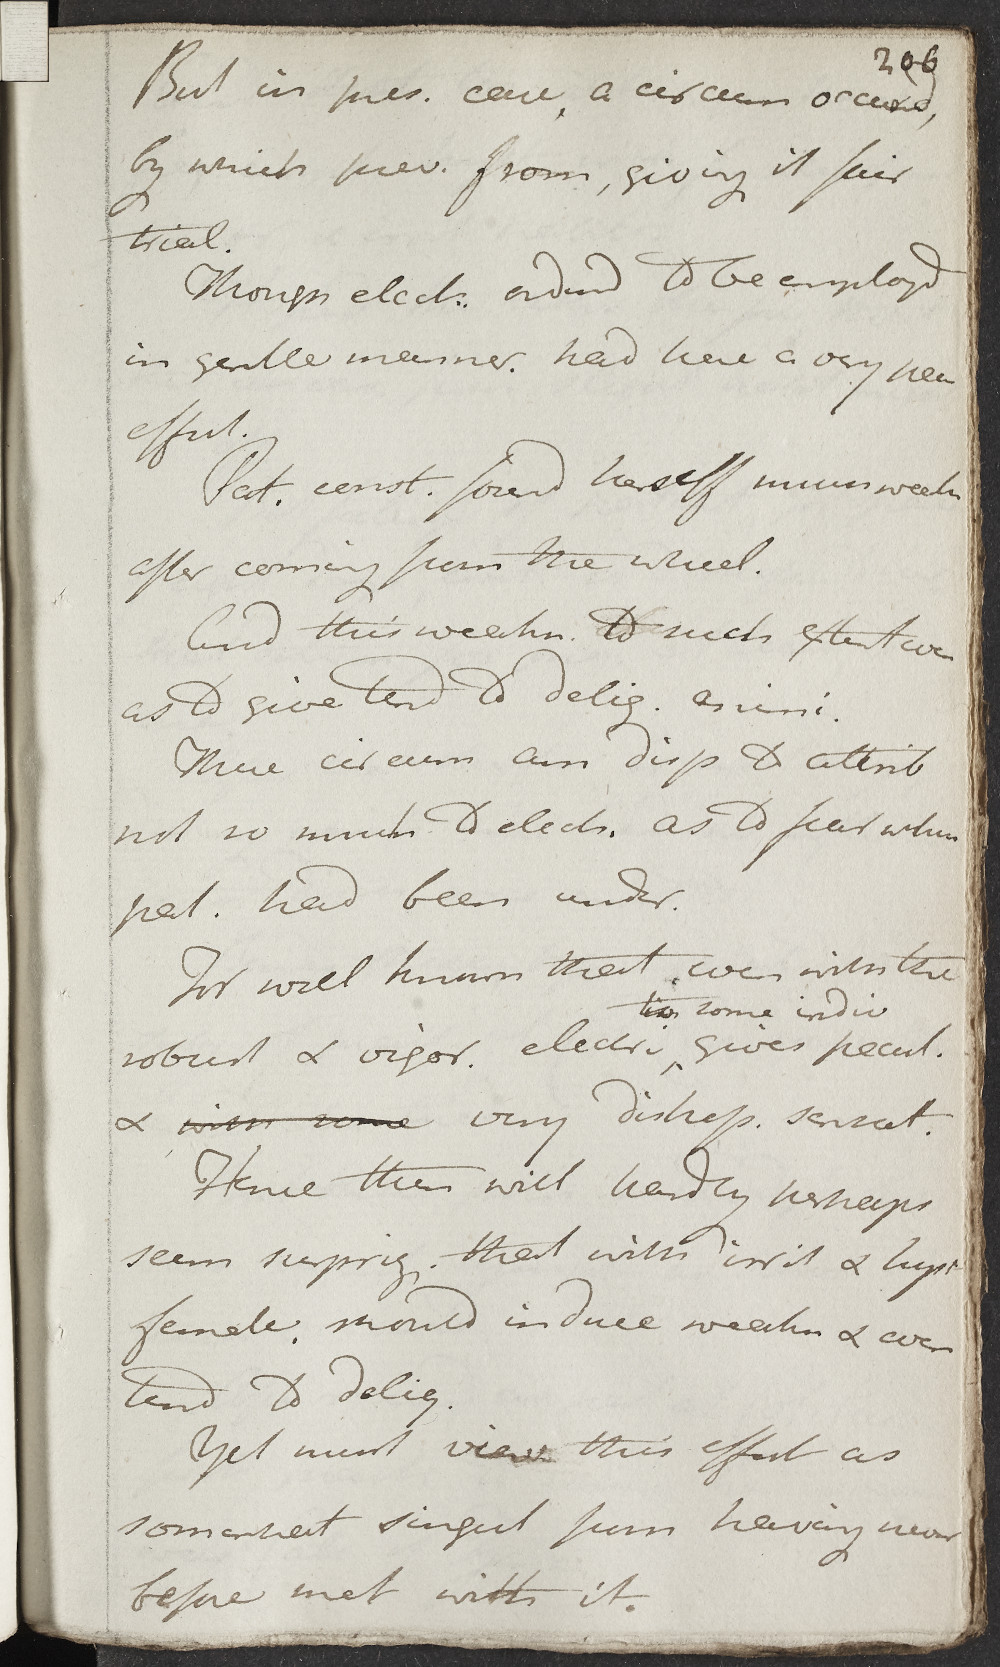 206
But in pres. case, a circum occured,
by which prev. from, giving it fair
trial.
Though elect. orderd to be employd
in gentle manner. had here a very pecu
effect.
Pat. const. found herself much weakn
after coming from the wheel.
And this weakn. to such extent even
as to give tend to deliq. animi.
These circum am disp to attrib
not so much to elect. as to fear when
pat. had been under.
For well known that even with the
robust & vigor. electri, gives pecul.
to some indiv
& with some very distress. sensat.
Hence then will hardly perhaps
seem surprig. that with irrit & hyst
female. should induce weakn & even
tend to deliq.
Yet must view this effect as
somewhat singul from having never
before met with it.